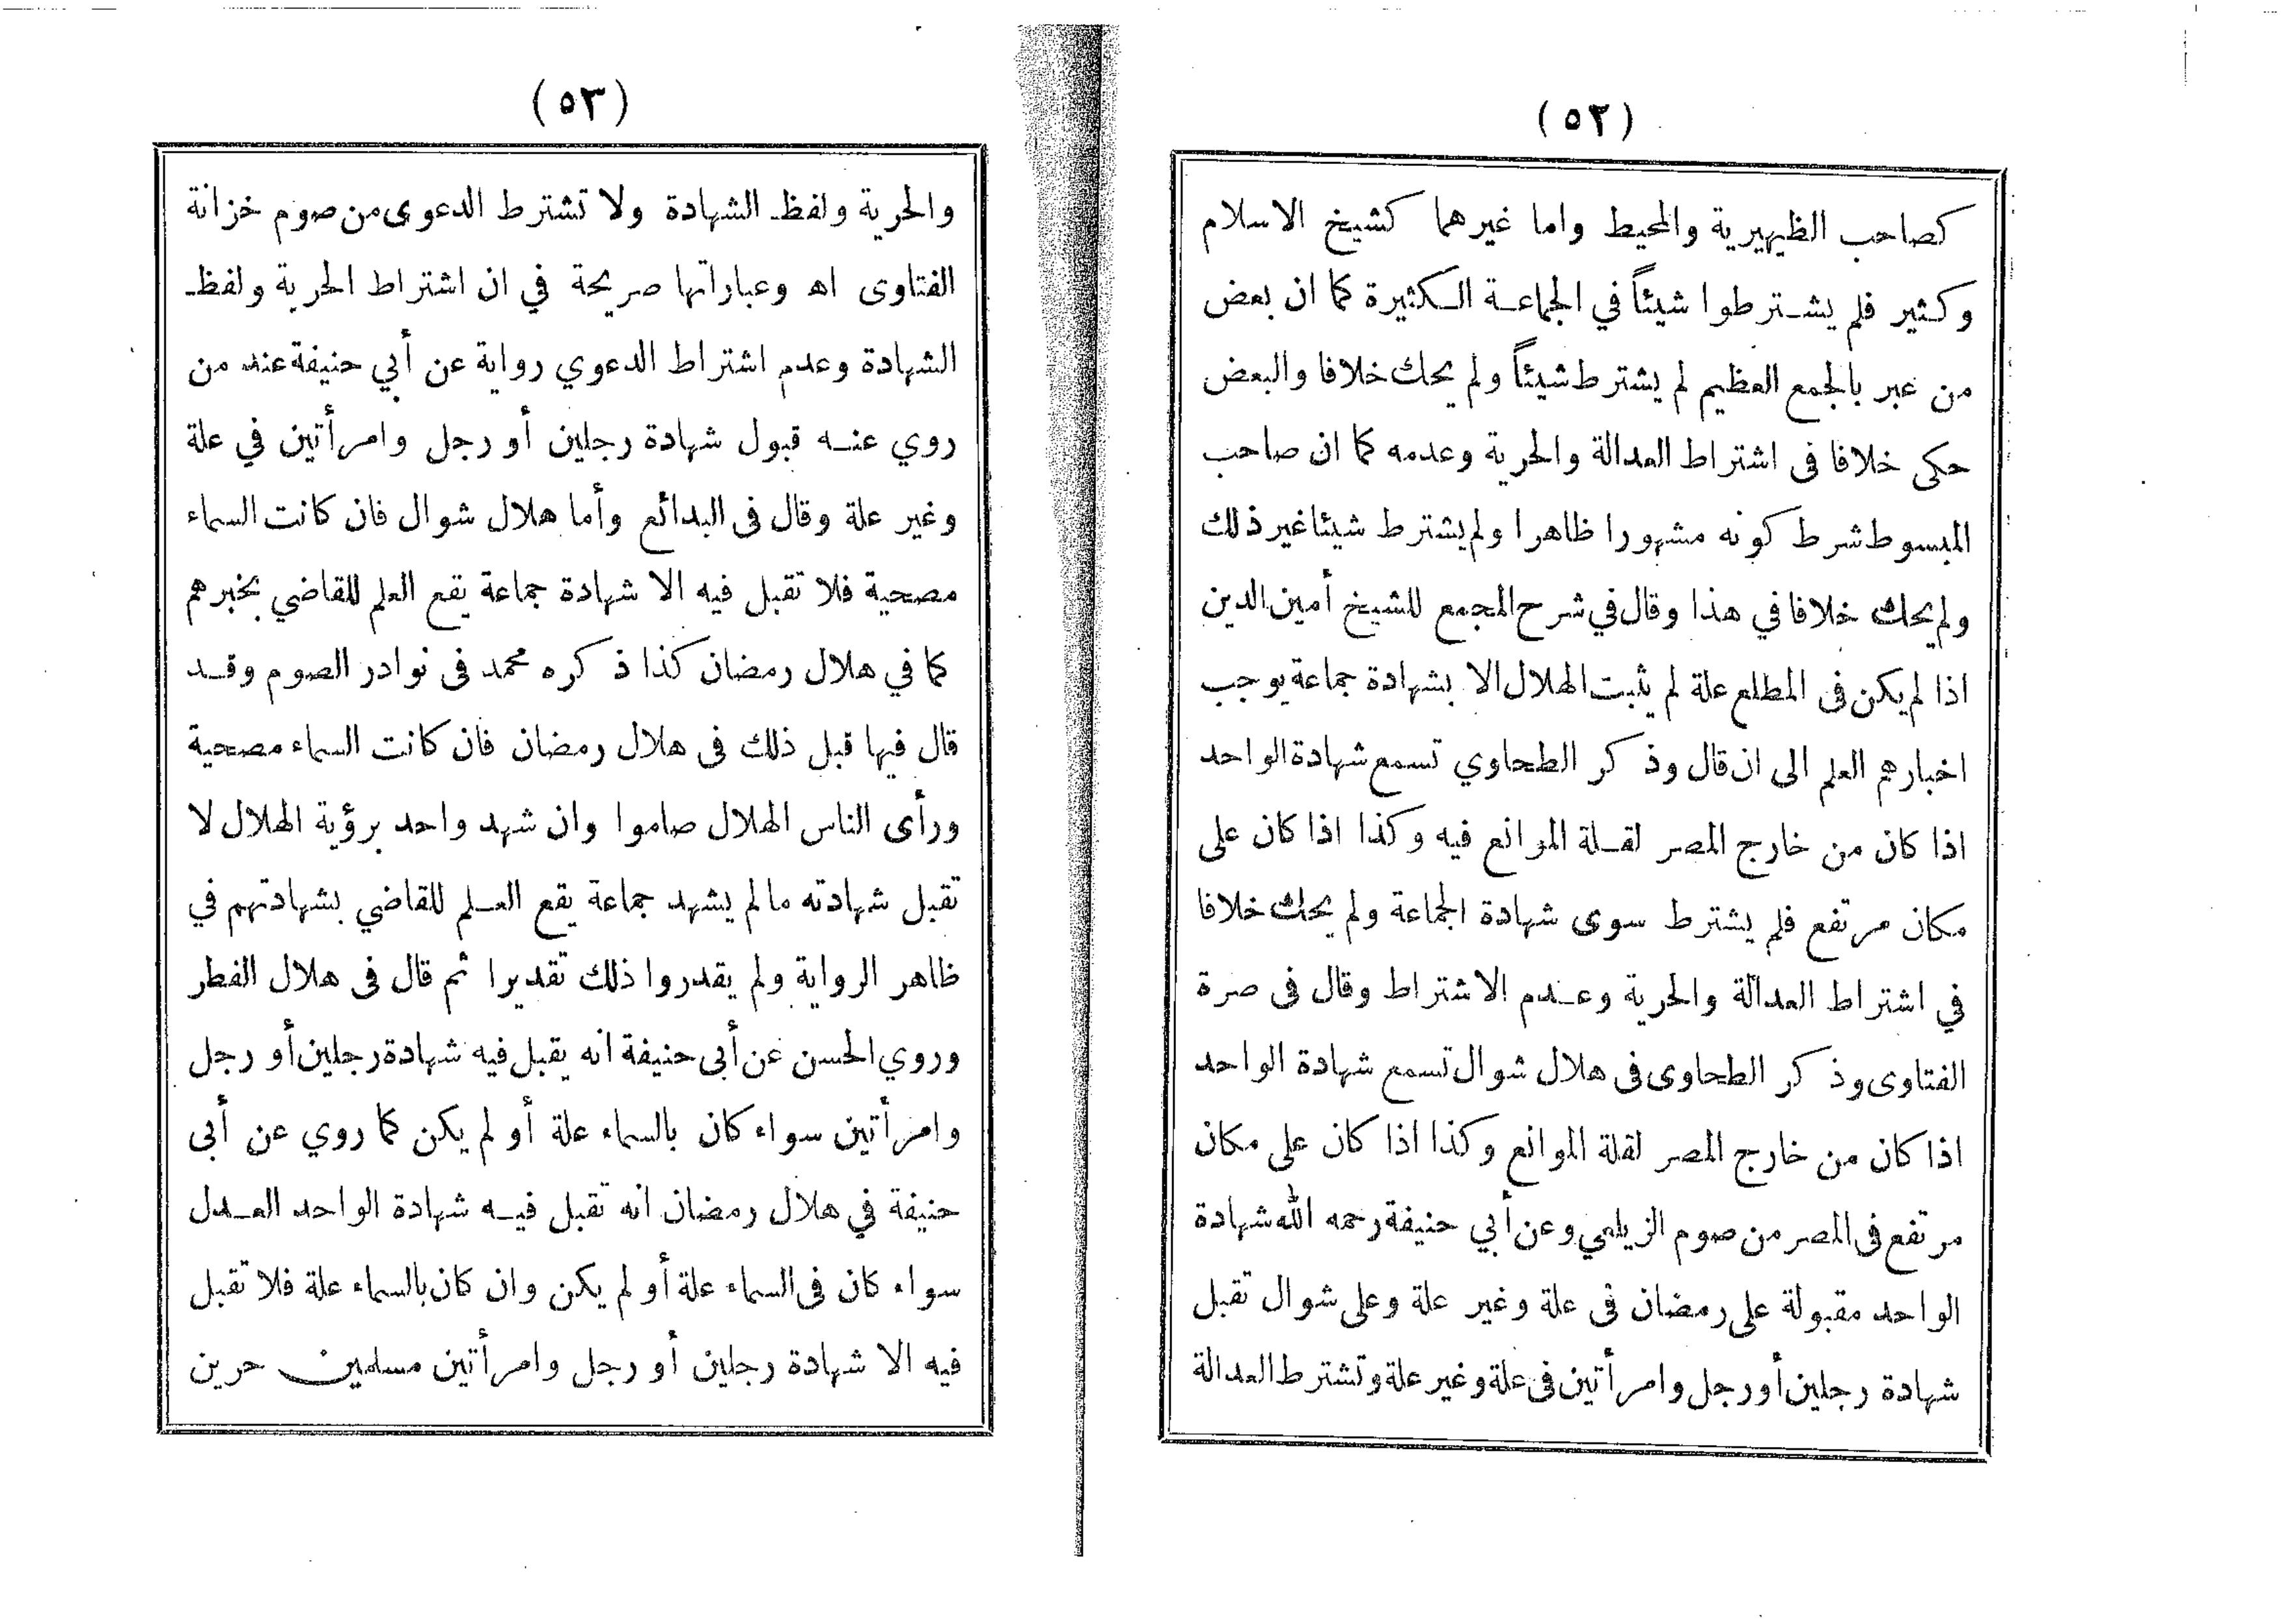 (٥٢)
كصاحب الظهيرية والمحيط واما غيرهما كشيخ الاسلام
وكثير فلم يشترطوا شيئاً في الجماعة الكثيرة كما ان بعض
من عبر بالجمع العظيم لم يشترط شيئاً ولم يحك خلافا والبعض
حكى خلافا فى اشتراط العدالة والحرية وعدمه كما ان صاحب
المبسوط شرط كونه مشهورا ظاهرا ولم يشترط شيئا غير ذلك
ولم يحك خلافا في هذا وقال في شرح المجمع للشيخ أمين الدين
اذا لم يكن فى المطلع علة لم يثبت الهلال الا بشهادة جماعة يوجب
اخبارهم العلم الى ان قال وذكر الطحاوي تسمع شهادة الواحد
اذا كان من خارج المصر لقلة الموانع فيه وكذا اذا كان على
مكان مرتفع فلم يشترط سوى شهادة الجماعة ولم يحك خلافا
في اشتراط العدالة والحرية وعدم الاشتراط وقال فى صرة
الفتاوى وذكر الطحاوى فى هلال شوال تسمع شهادة الواحد
اذا كان من خارج المصر لقلة الموانع وكذا اذا كان على مكان
مرتفع فى المصر من صوم الزيلعي وعن أبي حنيفة رحمه الله شهادة
الواحد مقبولة على رمضان فى علة وغير علة وعلى شوال تقبل
شهادة رجلين أو رجل وامرأتين فى علة وغير علة وتشترط العدالة
(٥٣)
والحرية ولفظ الشهادة ولا تشترط الدعوى من صوم خزانة
الفتاوى اه وعباراتها صريحة في ان اشتراط الحرية ولفظ
الشهادة وعدم اشتراط الدعوي رواية عن أبي حنيفة عند من
روي عنه قبول شهادة رجلين أو رجل وامرأتين في علة
وغير علة وقال فى البدائع وأما هلال شوال فان كانت السماء
مصحية فلا تقبل فيه الا شهادة جماعة يقع العلم للقاضي بخبرهم
كما في هلال رمضان كذا ذكره محمد فى نوادر الصوم وقد
قال فيها قبل ذلك فى هلال رمضان فان كانت السماء مصحية
ورأى الناس الهلال صاموا وان شهد واحد برؤية الهلال لا
تقبل شهادته مالم يشهد جماعة يقع العلم للقاضي بشهادتهم في
ظاهر الرواية ولم يقدروا ذلك تقديرا ثم قال فى هلال الفطر
وروي الحسن عن أبى حنيفة انه يقبل فيه شهادة رجلين أو رجل
وامرأتين سواء كان بالسماء علة أو لم يكن كما روي عن أبى
حنيفة في هلال رمضان انه تقبل فيه شهادة الواحد العدل
سواء كان فى السماء علة أو لم يكن وان كان بالسماء علة فلا تقبل
فيه الا شهادة رجلين أو رجل وامرأتين مسلمين حرين